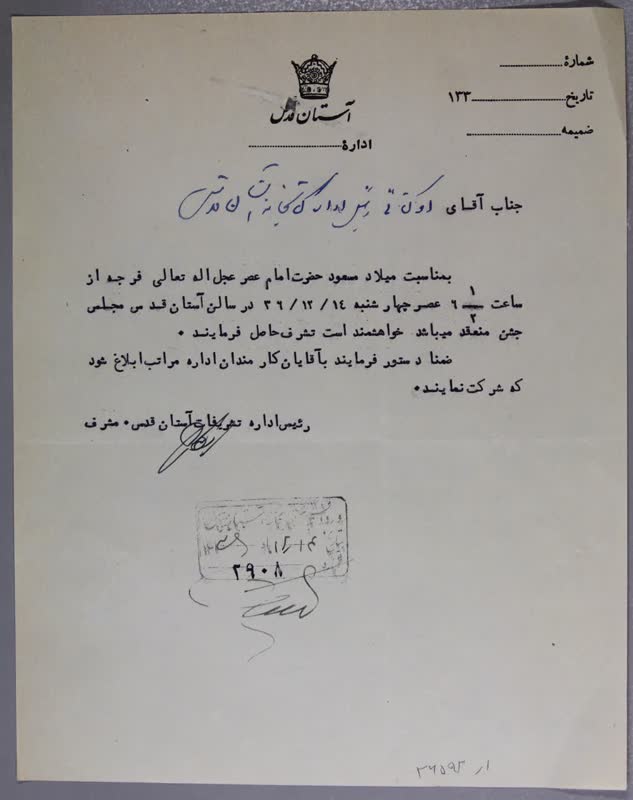 شمارهٔ
تاریخ ۱۳۳
ضمیمه
آستان قدس
ادارهٔ
جناب آقای اوکتائی رئیس اداره کتابخانه آستان قدس
بمناسبت میلاد مسعود حضرت امام عصر عجل اله تعالی فرجه از
ساعت ۶ ۱/۲ عصر چهارشنبه ۳۶/۱۲/۱۴ در سالن آستان قدس مجلس
جشن منعقد میباشد خواهشمند است تشرف حاصل فرمایند ۰
ضمنا دستور فرمایند بآقایان کارمندان اداره مراتب ابلاغ شود
که شرکت نمایند۰
رئیس اداره تشریفات آستان قدس۰ مشرف
۲۹۰۸
ار ۳۶۵۹۲